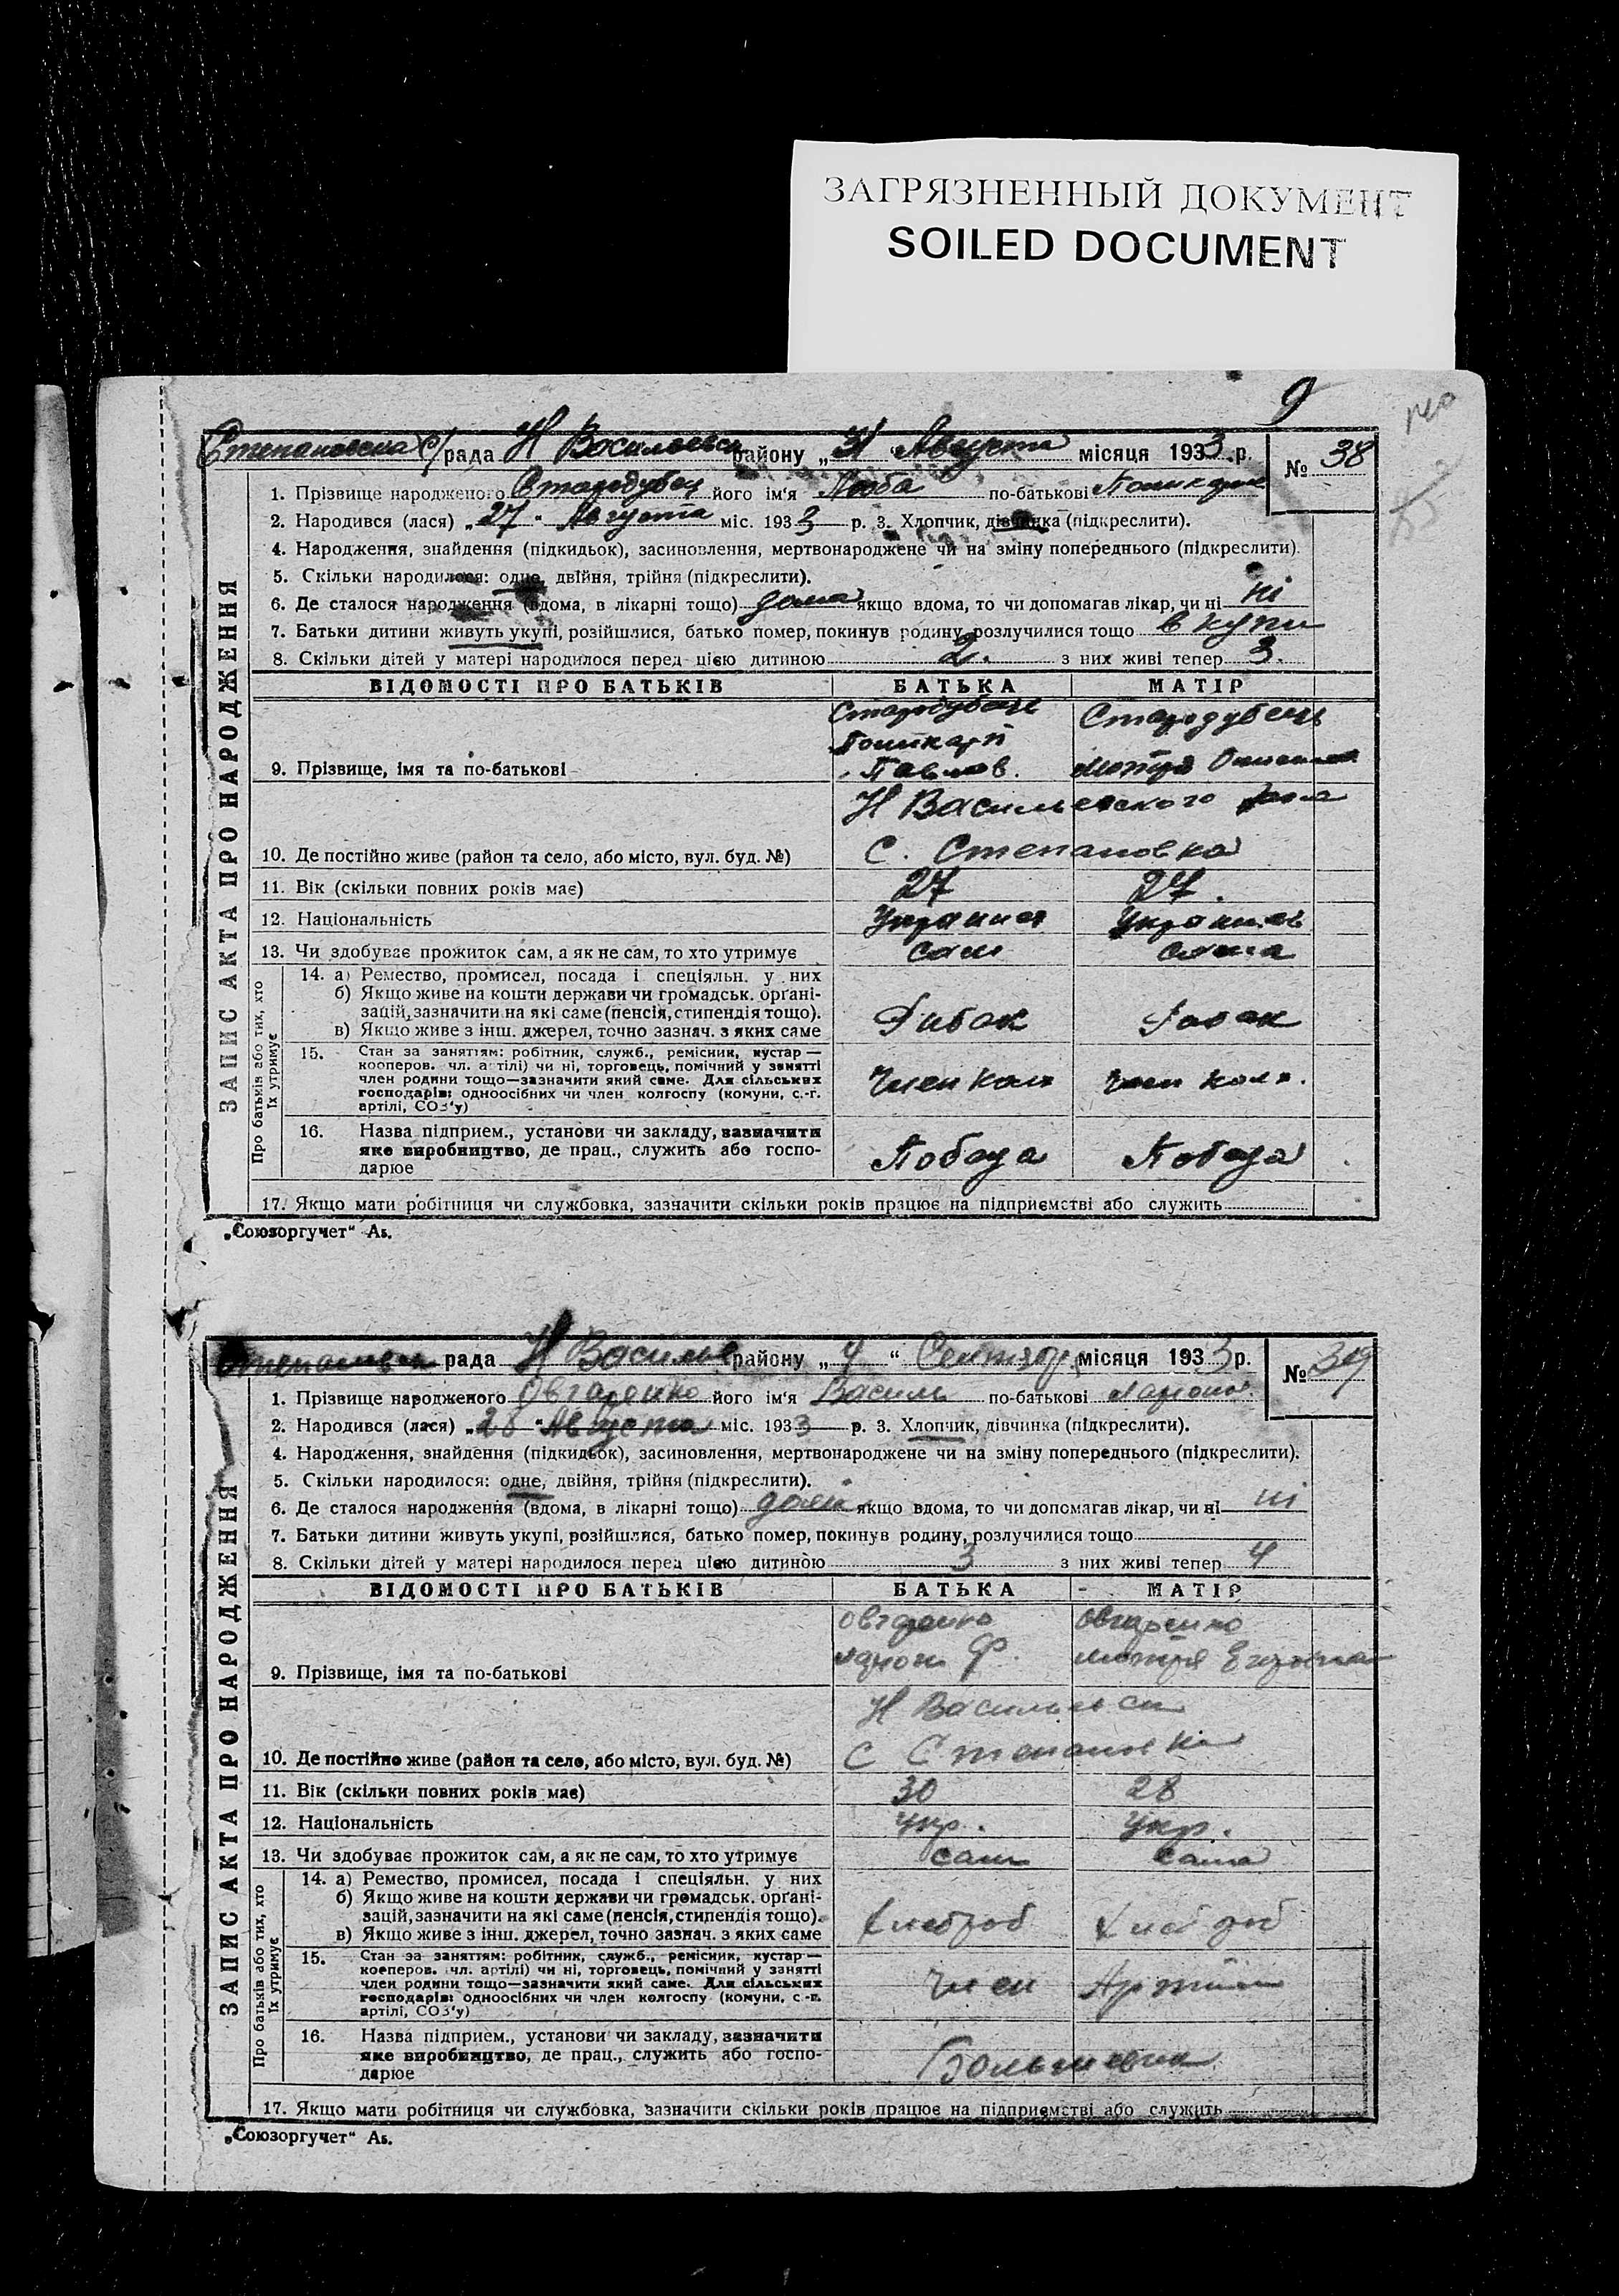 ЗАГРЯЗНЕННЫЙ ДОКУМЕНТ
SOILED DOCUMENT
9
Степановска с/рада Н Васильевск району „31 Августа місяця 1933 р. № 38
1. Прізвище народженого Стародубец його ім'я Люба по-батькові
2. Народився (лася) „27" Августа міс. 1933 р. 3. Хлопчик, дівчинка (підкреслити).
4. Народження, знайдення (підкидьок), засиновлення, мертвонароджене чи на зміну попереднього (підкреслити).
5. Скільки народилося: одне, двійня, трійня (підкреслити).
6. Де сталося народження (вдома, в лікарні тощо) дома якщо вдома, то чи допомагав лікар, чи ні ні
7. Батьки дитини живуть укупі, розійшлися, батько помер, покинув родину, розлучилися тощо вкупи
8. Скільки дітей у матері народилося перед цією дитиною 2. з них живі тепер 3.
ВІДОМОСТІ ПРО БАТЬКІВ БАТЬКА МАТІР
Стародубець Стародубець
Поликарп
9. Прізвище, імя та по-батькові Павлов. Мотря
Н Васильевского
10. Де постійно живе (район та село, або місто, вул. буд. №) С. Степановка
11. Вік (скільки повних років має) 27 27.
12. Національність
13. Чи здобуває прожиток сам, а як не сам, то хто утримує сам сама
14. а) Ремество, промисел, посада і спеціяльн. у них
б) Якщо живе на кошти держави чи громадськ. орґані-
зацій, зазначити на які саме (пенсія, стипендія тощо).
в) Якщо живе з інш. джерел, точно зазнач. з яких саме Рибак Рибак
15. Стан за заняттям: робітник, служб., ремісник, кустар —
кооперов. чл. артілі) чи ні, торговець, помічний у занятті
член родини тощо—зазначити який саме. Для сільських
господарів: одноосібних чи член колгоспу (комуни, с.-г.
артілі, СОЗ'у) Член колх Член колх.
16. Назва підприєм., установи чи закладу, зазначити
яке виробництво, де прац., служить або госпо-
дарює Победа Победа
17. Якщо мати робітниця чи службовка, зазначити скільки років працює на підприємстві або служить
ЗАПИС АКТА ПРО НАРОДЖЕННЯ
Про батьків або тих, хто
їх утримує
„Союзоргучет" А5.
рада Н Василье району „4" Сентября місяця 1933 р. № 39
1. Прізвище народженого Овчаренко його ім'я Василь по-батькові
2. Народився (лася) „28" Августа міс. 1933 р. 3. Хлопчик, дівчинка (підкреслити).
4. Народження, знайдення (підкидьок), засиновлення, мертвонароджене чи на зміну попереднього (підкреслити).
5. Скільки народилося: одне, двійня, трійня (підкреслити).
6. Де сталося народження (вдома, в лікарні тощо) якщо вдома, то чи допомагав лікар, чи ні ні
7. Батьки дитини живуть укупі, розійшлися, батько помер, покинув родину, розлучилися тощо
8. Скільки дітей у матері народилося перед цією дитиною 3 з них живі тепер 4
ВІДОМОСТІ ПРО БАТЬКІВ БАТЬКА МАТІР
Овчаренко Овчаренко
9. Прізвище, імя та по-батькові Ф. Мотря
Н Васильевск
10. Де постійно живе (район та село, або місто, вул. буд. №) С Степановка
11. Вік (скільки повних років має) 30 28
12. Національність Укр. Укр.
13. Чи здобуває прожиток сам, а як не сам, то хто утримує сам сама
14. а) Ремество, промисел, посада і спеціяльн. у них
б) Якщо живе на кошти держави чи громадськ. орґані-
зацій, зазначити на які саме (пенсія, стипендія тощо).
в) Якщо живе з інш. джерел, точно зазнач. з яких саме Хлебороб Хлебороб
15. Стан за заняттям: робітник, служб., ремісник, кустар —
кооперов. чл. артілі) чи ні, торговець, помічний у занятті
член родини тощо—зазначити який саме. Для сільських
господарів: одноосібних чи член колгоспу (комуни, с.-г.
артілі, СОЗ'у) Член
16. Назва підприєм., установи чи закладу, зазначити
яке виробництво, де прац., служить або госпо-
дарює Большевик
17. Якщо мати робітниця чи службовка, зазначити скільки років працює на підприємстві або служить
ЗАПИС АКТА ПРО НАРОДЖЕННЯ
Про батьків або тих, хто
їх утримує
„Союзоргучет" А5.